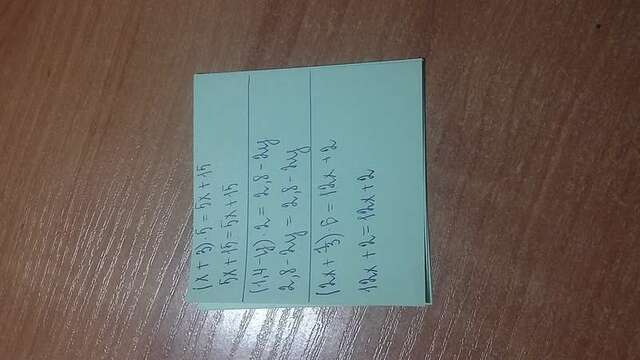 (x + 3) · 5 = 5x + 15
5x + 15 = 5x + 15
(1,4 - y) · 2 = 2,8 - 2y
2,8 - 2y = 2,8 - 2y
(2x + 1/3) · 6 = 12x + 2
12x + 2 = 12x + 2